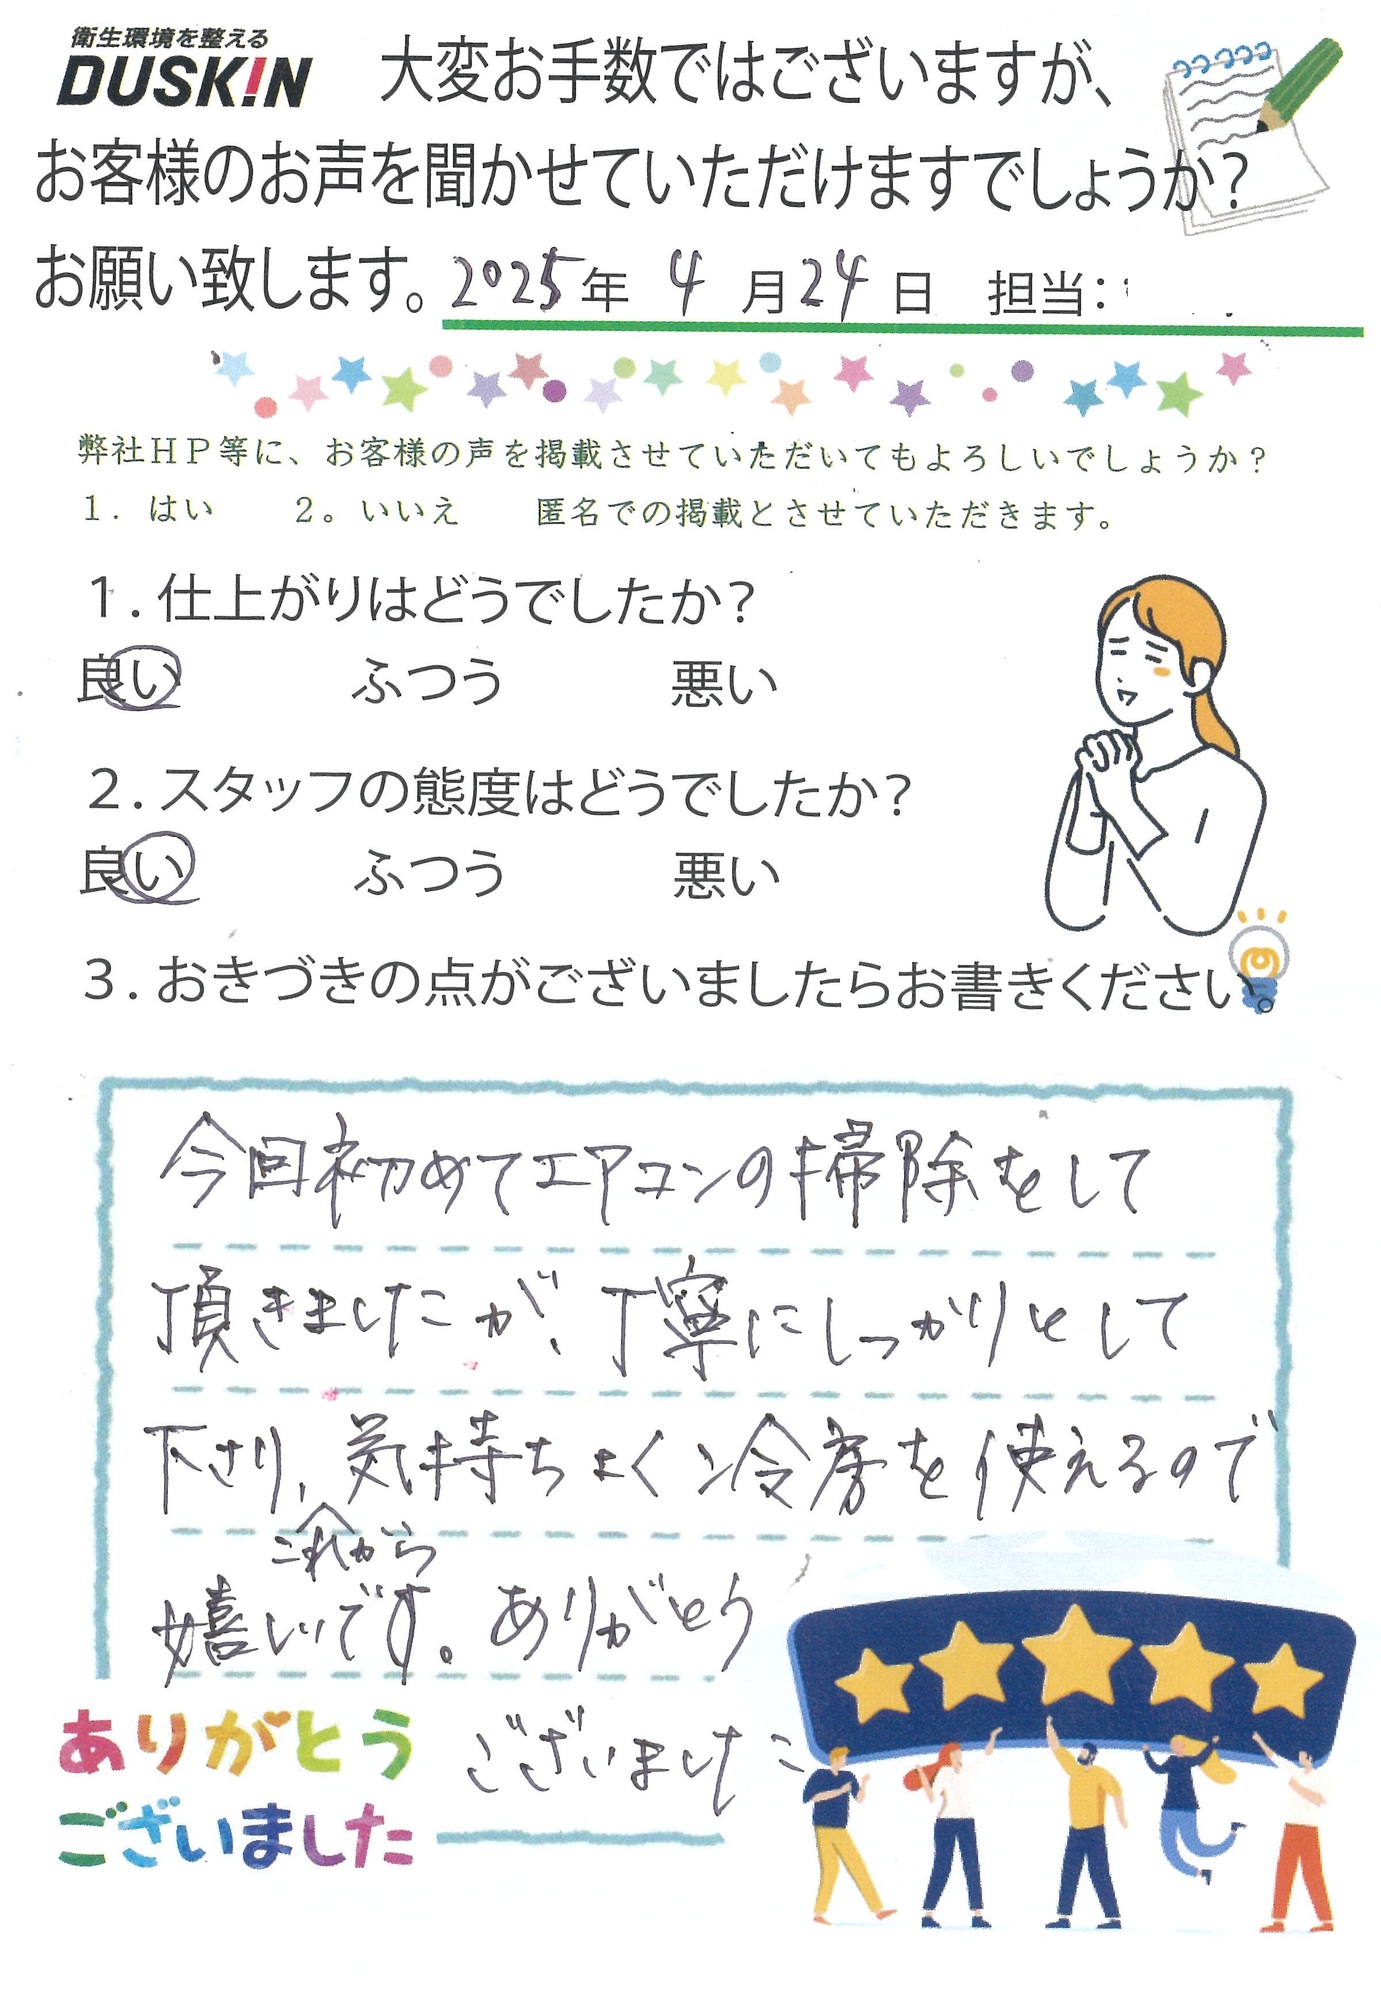 衛生環境を整える
DUSKIN
大変お手数ではございますが、
お客様のお声を聞かせていただけますでしょうか？
お願い致します。2025年 4月24日 担当：
弊社ＨＰ等に、お客様の声を掲載させていただいてもよろしいでしょうか？
１．はい ２。いいえ 匿名での掲載とさせていただきます。
１．仕上がりはどうでしたか？
良い ふつう 悪い
２．スタッフの態度はどうでしたか？
良い ふつう 悪い
３．おきづきの点がございましたらお書きください
今回初めてエアコンの掃除をして
頂きましたが、丁寧にしっかりとして
下さり、気持ちよく冷房を使えるので
これから
嬉しいです。ありがとう
ございました
ありがとう
ございました